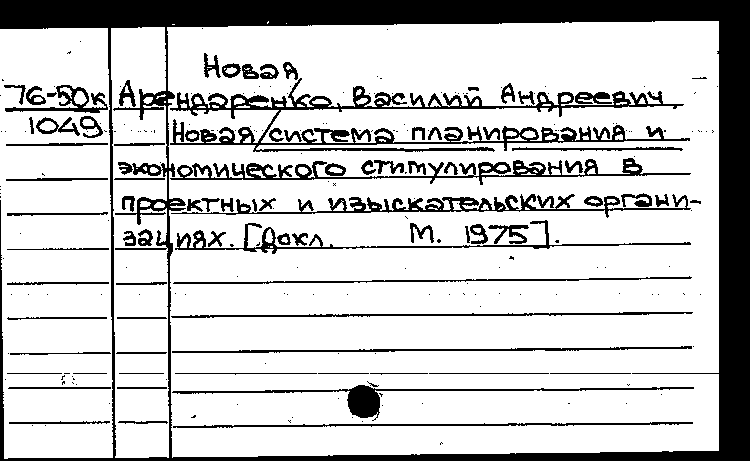 Новая
76-50к Арендаренко, Василий Андреевич.
1049 Новая/система планирования и
экономического стимулирования в
проектных и изыскательских органи-
зациях. [Докл. М. 1975].